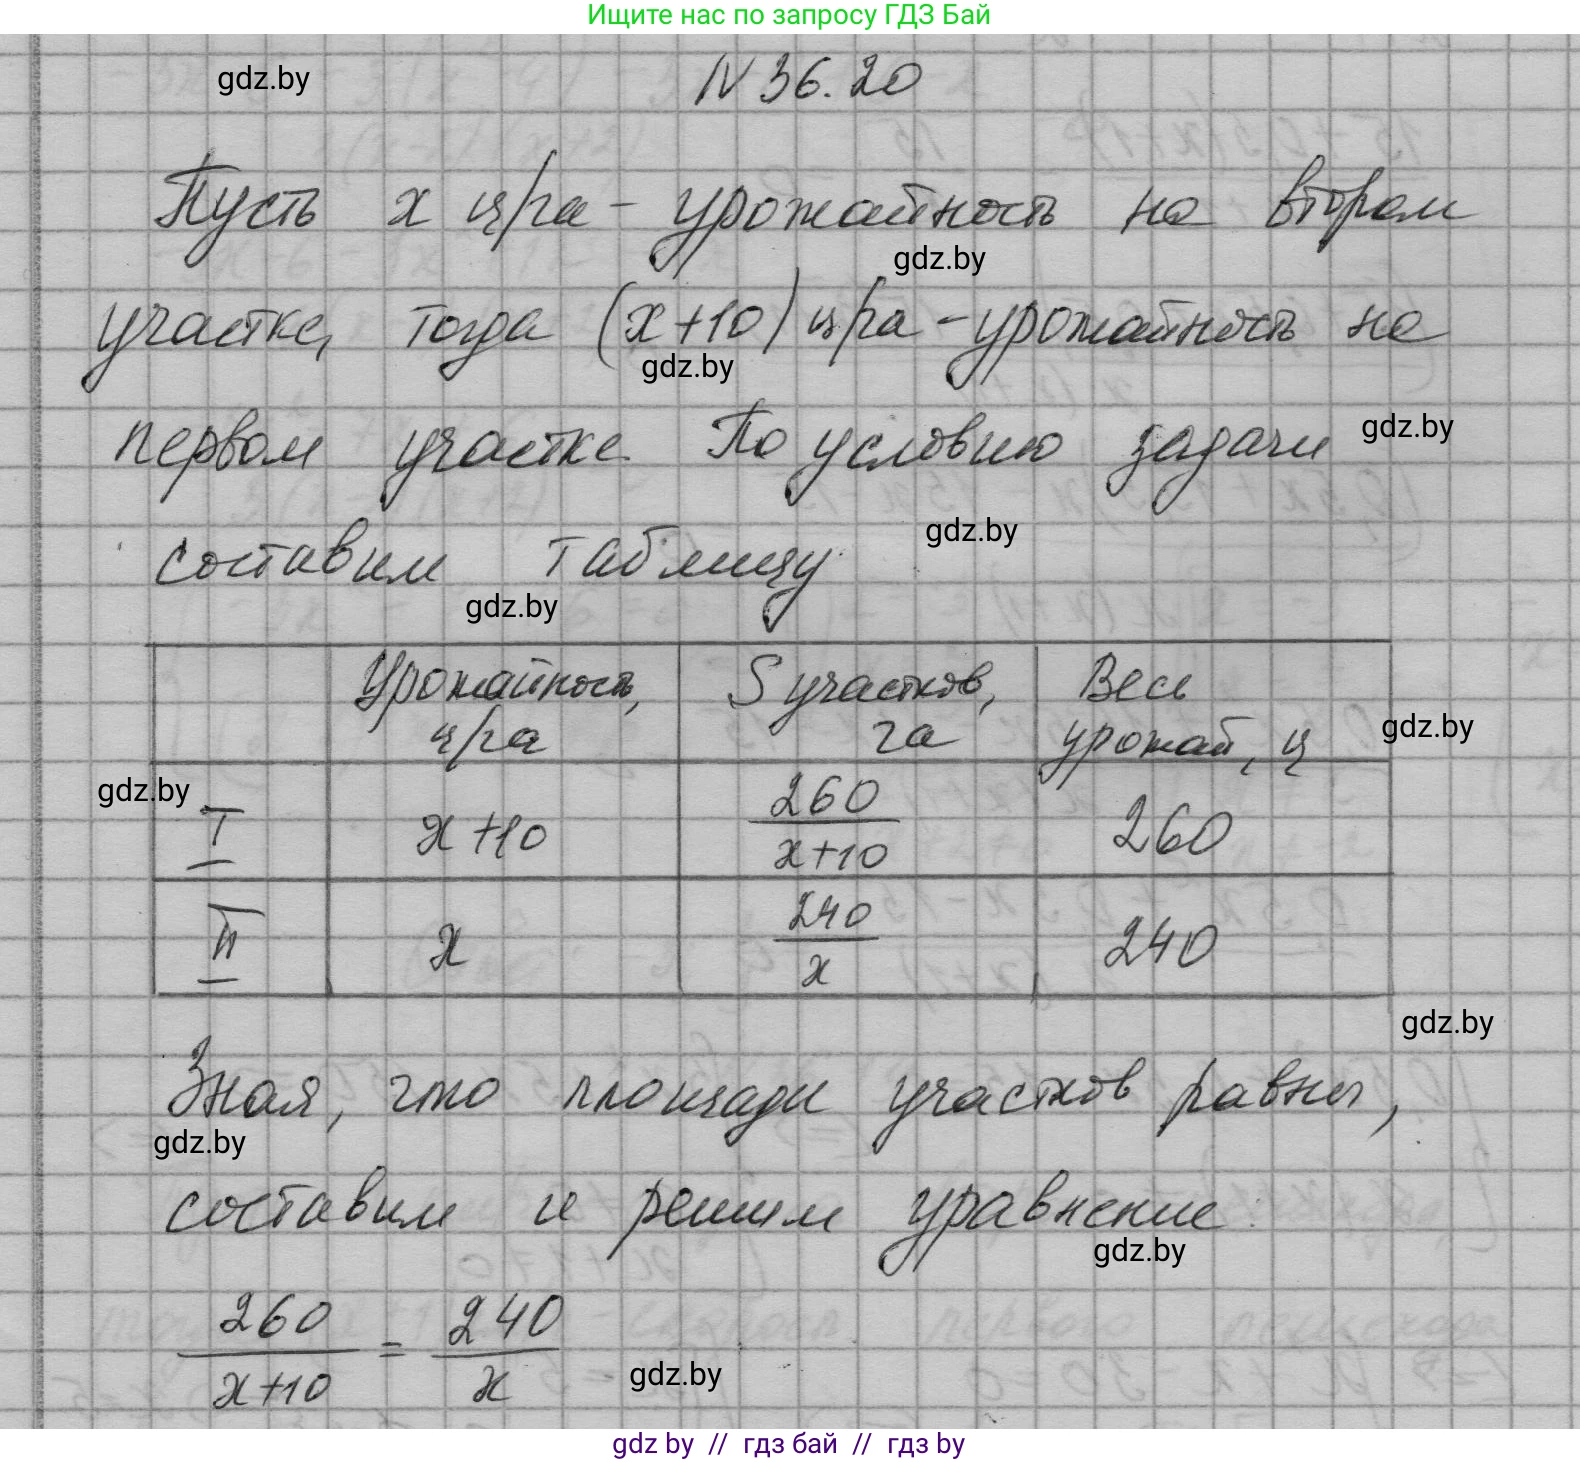 Ищите нас по запросу ГДЗ Бай
gdz.by
N 36.20
Пусть x ц/га - урожайность на втором
gdz.by
участке, тогда (x+10) ц/га - урожайность на
gdz.by
первом участке. По условию задачи
gdz.by
составим таблицу
gdz.by
gdz.by
Урожайность, ц/га
S участков, га
Весь урожай, ц
gdz.by
gdz.by
I x+10 260/(x+10) 260
II x 240/x 240
gdz.by
Зная, что площади участков равны,
gdz.by
составим и решим уравнение:
gdz.by
260/(x+10) = 240/x
gdz.by
gdz by // гдз бай // гдз by